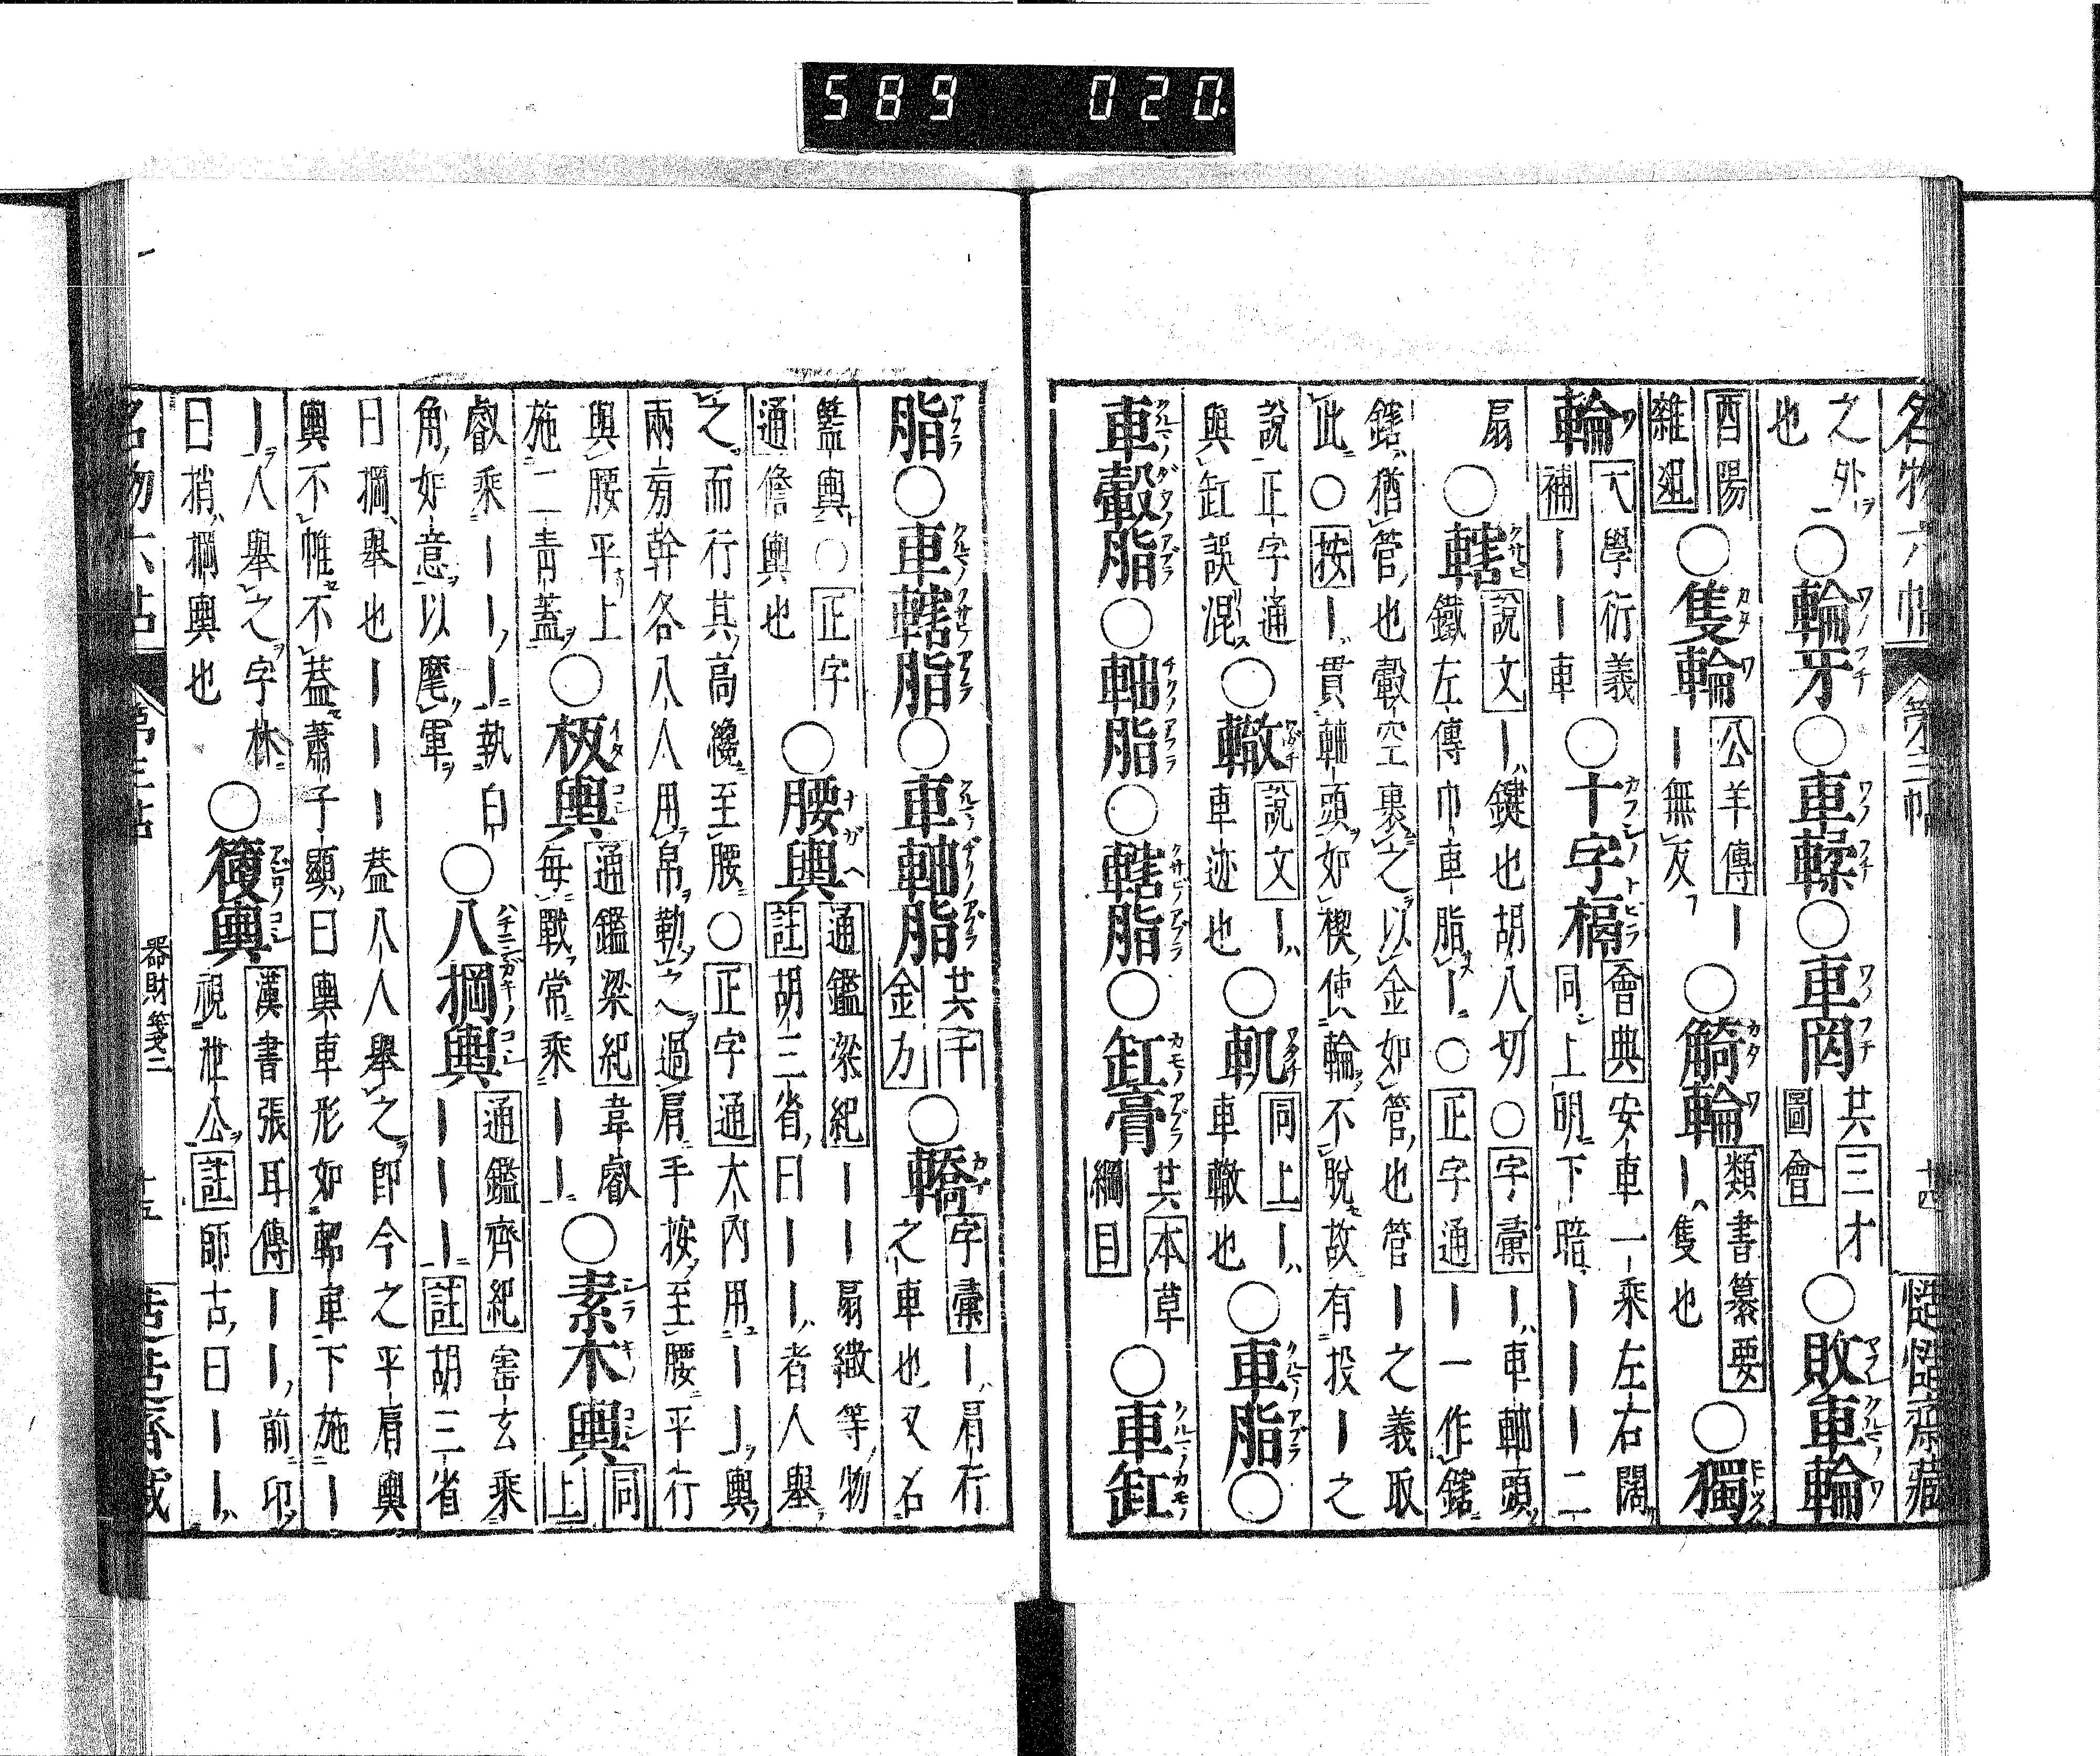 名物六帖 第三帖 十四 慥慥齋藏
之外ヲ
也
○輪牙○車輮○車罔
共三才
圖會
○敗車輪
酉陽
雜俎
○隻輪
公羊傳｜
｜無反
○觭輪
類書纂要
｜隻也
○獨
輪
大學衍義
補｜｜車
○十字槅
會典安車一乘左右闊
同上明下暗｜｜｜二
扇
○轄
說文｜鍵也胡八切○字彙｜車軸頭
鐵左傳巾車脂｜○正字通｜一作鎋
鎋猶管也轂空裏之以金如管也管｜之義取
此○按｜貫軸頭如楔使輪不脫故有投｜之
說正字通
與缸誤混
○轍
說文｜
車迹也
○軌
同上｜
車轍也
○車脂○
車轂脂○軸脂○轄脂○缸膏
共本草
綱目
○車缸
脂○車轄脂○車軸脂
廿六千
金方
○轎
字彙｜肩行
之車也又名
籃輿○正字
通擔輿也
○腰輿
通鑑梁紀｜｜扇繖等物
註胡三省曰｜｜者人舉
之而行其高纔至腰○正字通大內用｜｜輿
兩旁幹各八人用帛勒之過肩手按至腰平行
與腰平上
施二青蓋
○板輿
通鑑梁紀韋叡
每戰常乘｜｜
○素木輿
同
上
叡乘｜｜｜執白
角如意以麾軍
○八掆輿
通鑑齊紀窰玄乘
｜｜｜｜註胡三省
曰掆舉也｜｜｜蓋八人舉之即今之平肩輿
輿不帷不蓋蕭子顯曰輿車形如軺車下施｜
｜人舉之字林
曰捎掆輿也
○箯輿
漢書張耳傳｜｜前卬
視泄公註師古曰｜｜
名物六帖 第三帖 器財箋三 十五
589 020